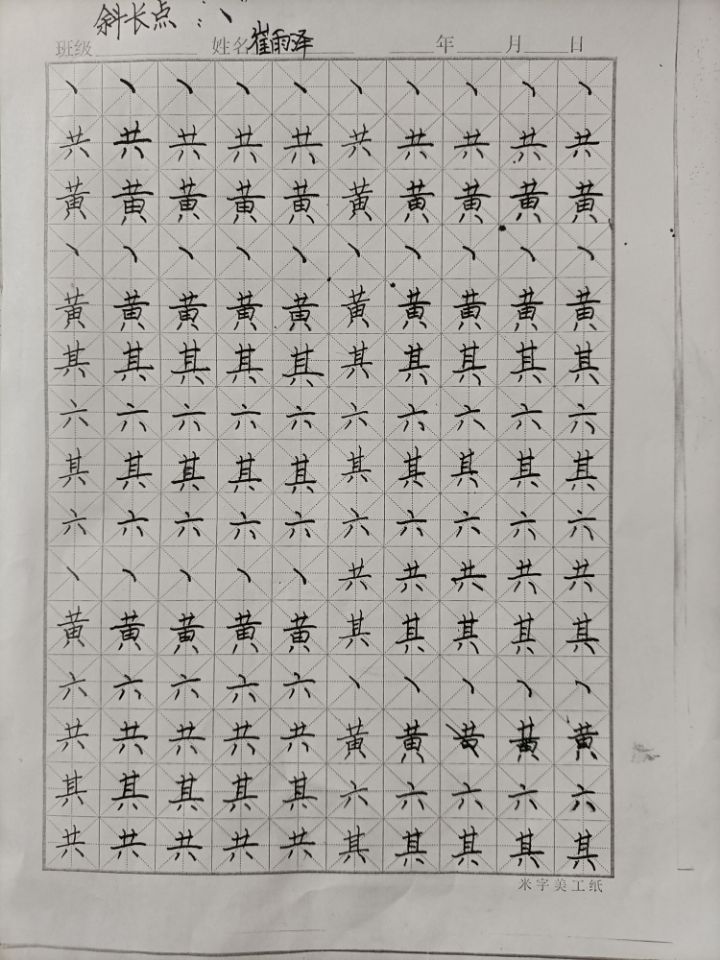 斜长点：丶
班级 姓名 崔雨泽 年 月 日
丶 丶 丶 丶 丶 丶 丶 丶 丶 丶
共 共 共 共 共 共 共 共 共 共
黄 黄 黄 黄 黄 黄 黄 黄 黄 黄
丶 丶 丶 丶 丶 丶 丶 丶 丶 丶
黄 黄 黄 黄 黄 黄 黄 黄 黄 黄
其 其 其 其 其 其 其 其 其 其
六 六 六 六 六 六 六 六 六 六
其 其 其 其 其 其 其 其 其 其
六 六 六 六 六 六 六 六 六 六
丶 丶 丶 丶 丶 共 共 共 共 共
黄 黄 黄 黄 黄 其 其 其 其 其
六 六 六 六 六 丶 丶 丶 丶 丶
共 共 共 共 共 黄 黄 黄 黄 黄
其 其 其 其 其 六 六 六 六 六
共 共 共 共 共 其 其 其 其 其
米字美工纸